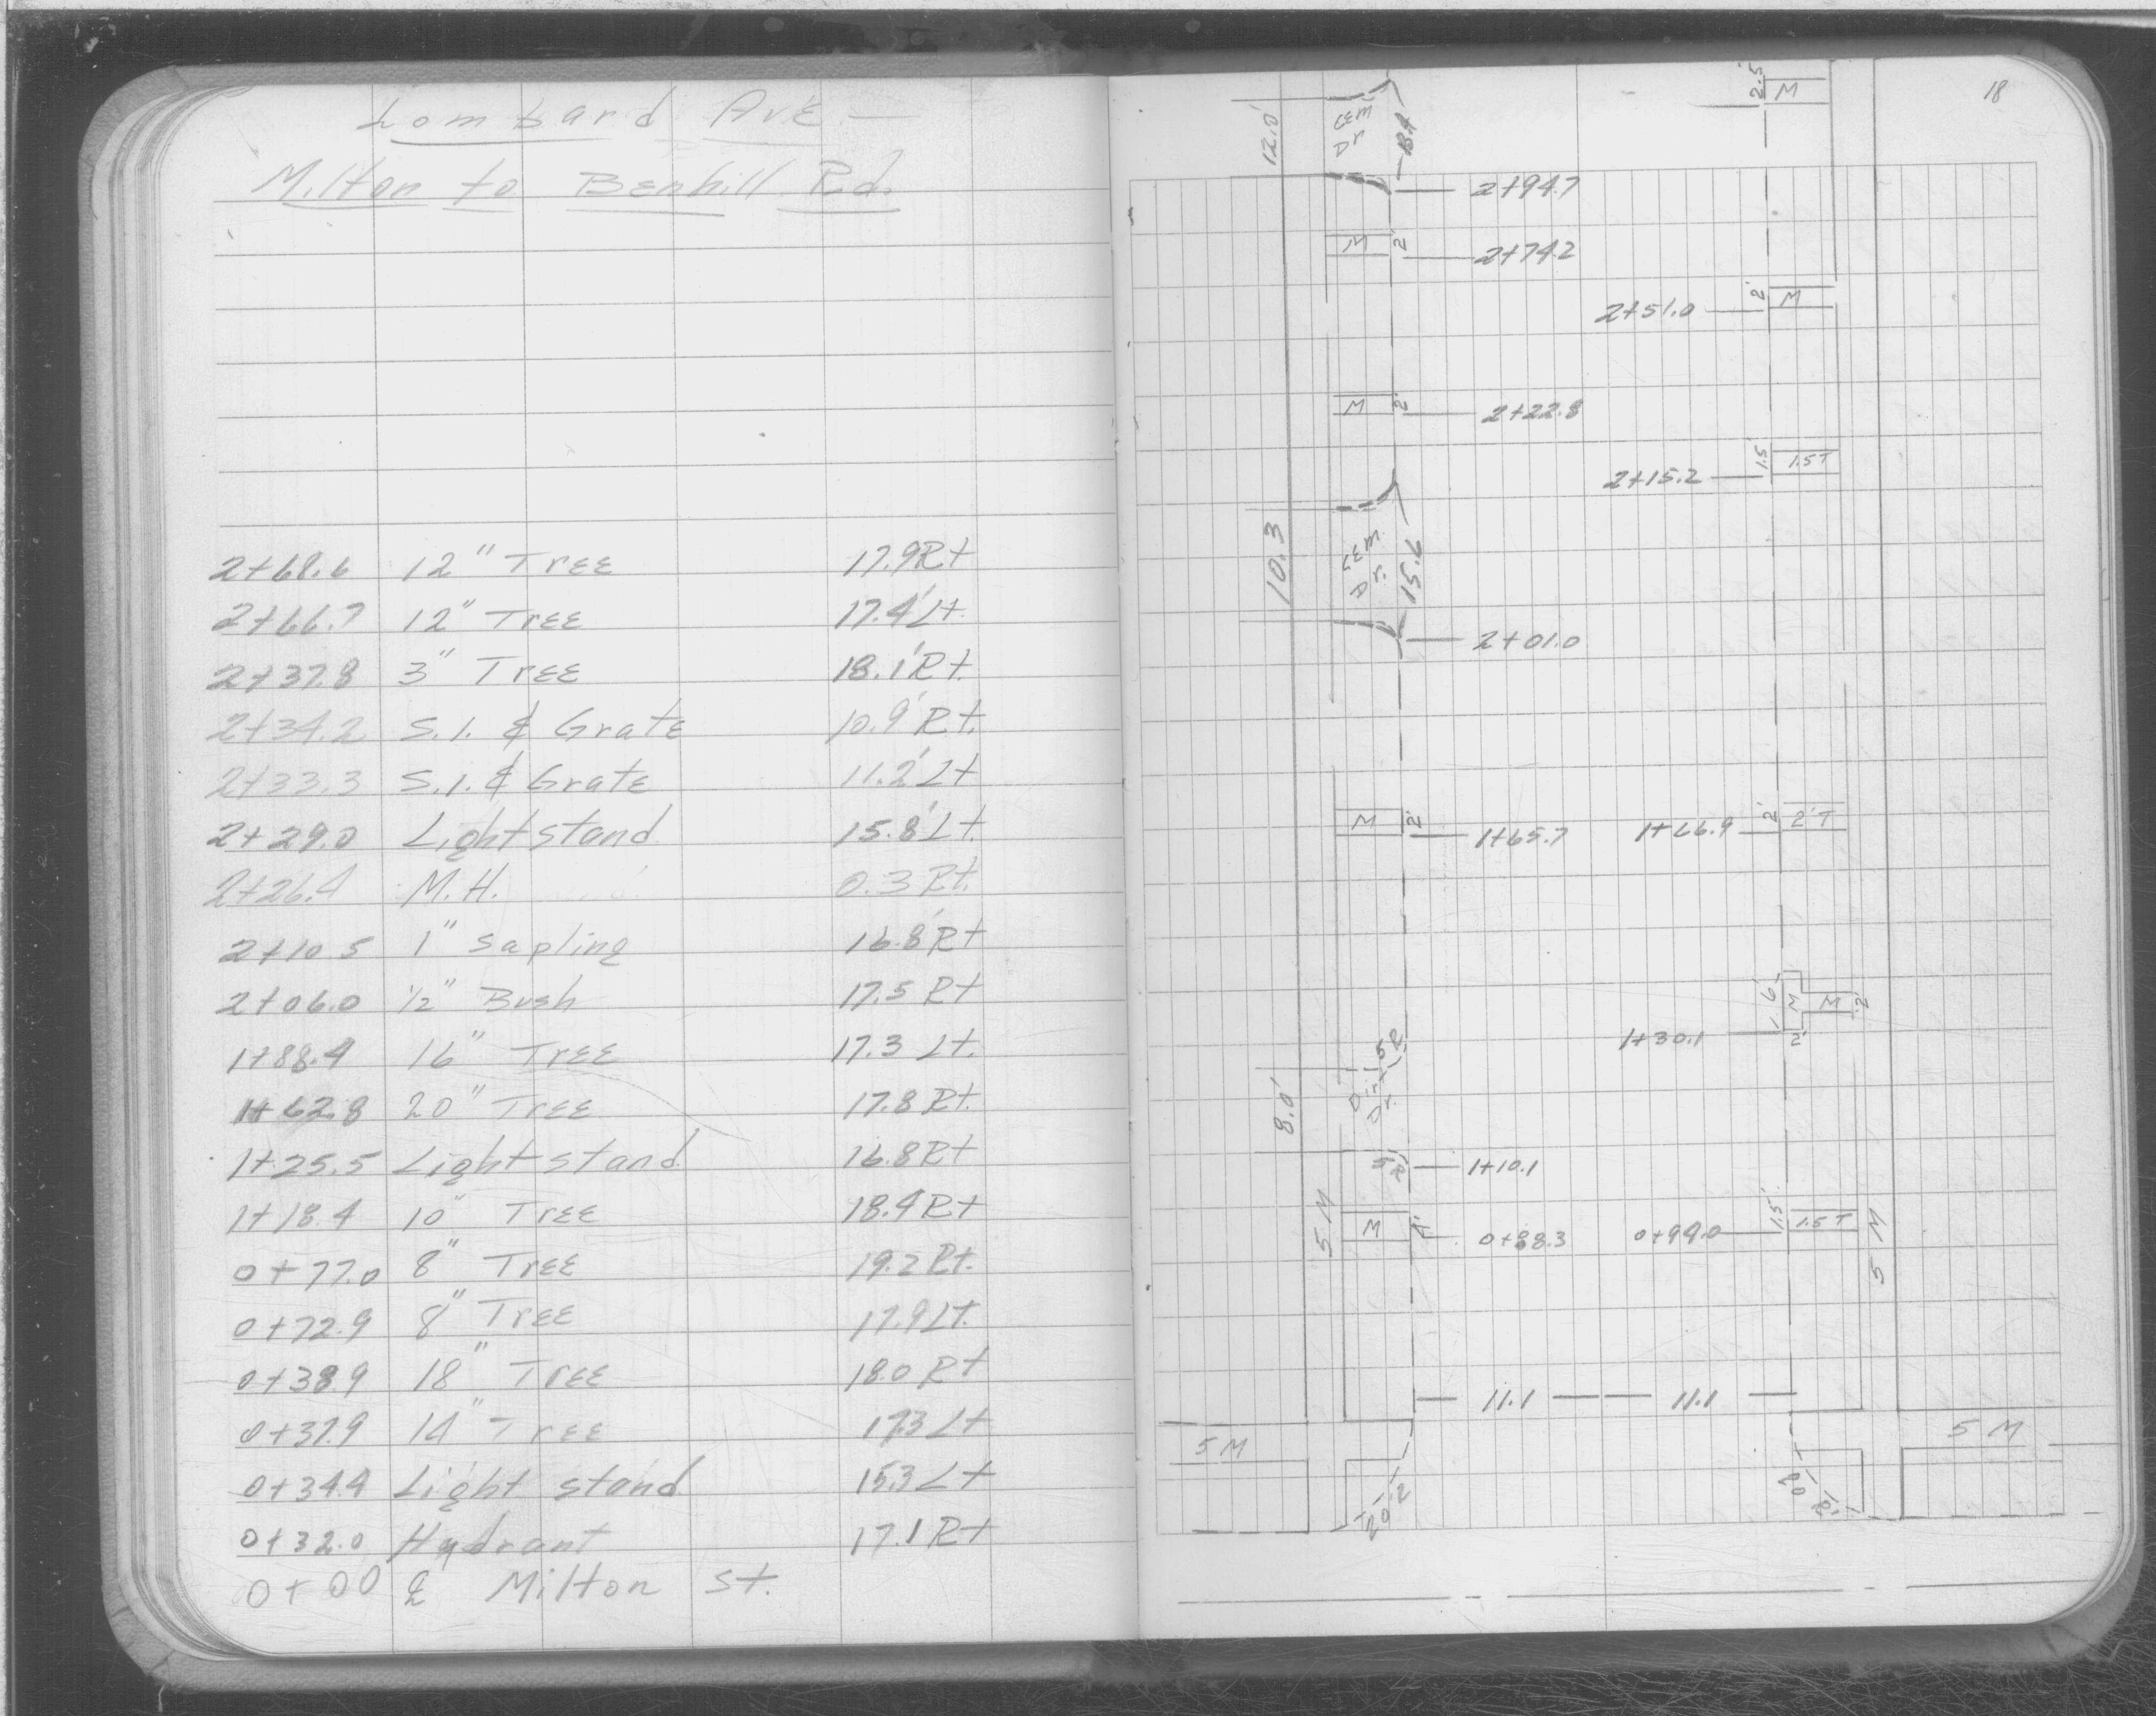 Lombard Ave
Milton to Benhill Rd.
2+68.6 12" Tree 17.9 Rt
2+66.7 12" Tree 17.4' Lt.
2+37.8 3" Tree 18.1' Rt.
2+34.2 S.I. & Grate 10.9' Rt.
2+33.3 S.I. & Grate 11.2' Lt
2+29.0 Light stand 15.8' Lt.
2+26.4 M.H. 0.3 Rt.
2+10.5 1" Sapling 16.8' Rt
2+06.0 1/2" Bush 17.5 Rt
1+88.4 16" Tree 17.3 Lt.
1+62.8 20" Tree 17.8 Rt.
1+25.5 Light stand 16.8 Rt
1+18.4 10" Tree 18.4 Rt
0+77.0 8" Tree 19.2 Rt.
0+72.9 8" Tree 17.9 Lt.
0+38.9 18" Tree 18.0 Rt
0+37.9 14" Tree 17.3 Lt
0+34.4 Light stand 15.3 Lt
0+32.0 Hydrant 17.1 Rt
0+00 ℄ Milton St.
18
2.5' M
12.0' Cem Dr
2+94.7
M 2' 2+74.2
2+51.0 2' M
M 2' 2+22.8
2+15.2 1.5' 1.5 T
10.3 Cem Dr. 15.6
2+01.0
M 2' 1+65.7 1+66.9 2' 2' T
6' M M 2'
1+30.1 2'
5 R
8.0' Dirt Dr.
5 R 1+10.1
5 M M 0+88.3 0+99.0 1.5' 1.5 T 5 M
11.1 11.1
5 M 5 M
20.2